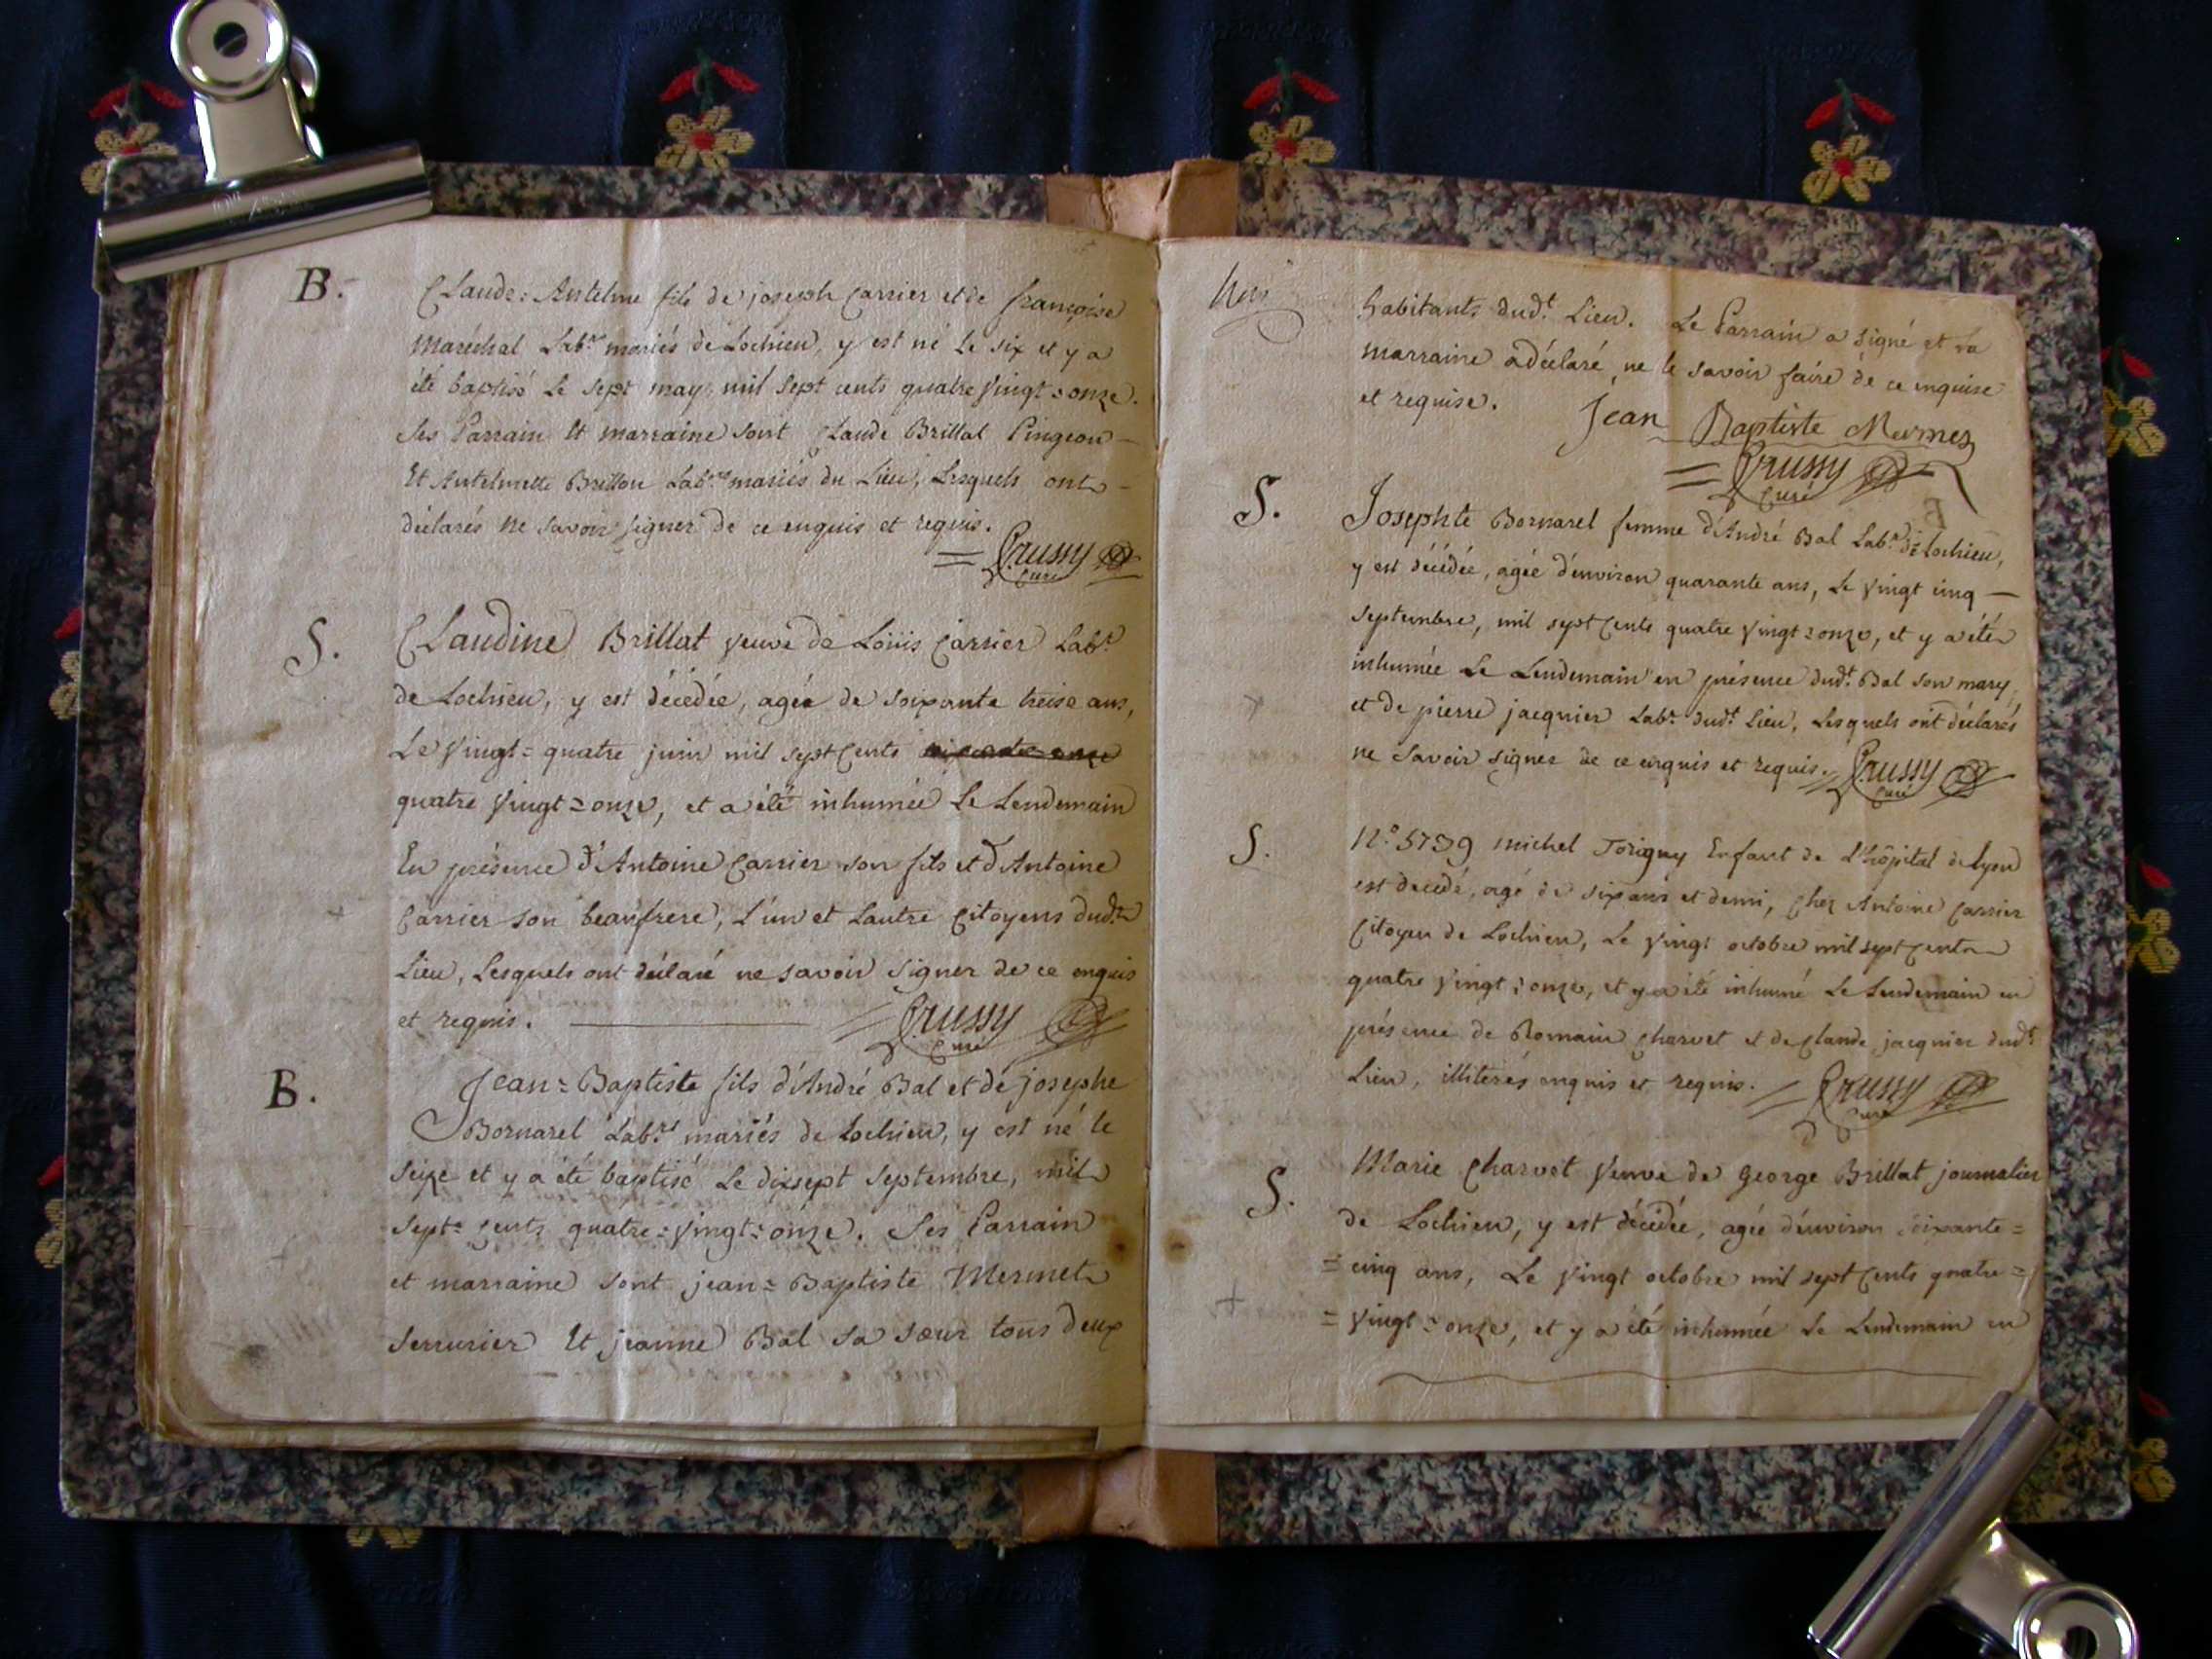 B.
CLaude = Antelme fils de joseph Carrier et de françoise
Maréchal Labrs mariés de Lochieu, y est né Le six et y a
été baptisé Le sept may mil sept cents quatre Vingt = onze.
Ses Parrain Et marraine sont CLaude Brillat Pingeon —
Et Antelmette Brillon Labrs mariés du Lieu, Lesquels ont —
déclarés ne savoir signer de ce enquis et requis.
= Crussy
Curé
S.
CLaudine Brillat veuve de Loüis Carrier Labr
de Lochieu, y est décédée, agée de soixante treise ans,
Le Vingt = quatre juin mil sept Cents
quatre Vingt = onze, et a été inhumée Le Lendemain
En présence d'Antoine Carrier son fils et d'Antoine
Carrier son beaufrere, L'un et Lautre Citoyens dudt
Lieu, Lesquels ont déclaré ne savoir signer de ce enquis
et requis. — = Crussy
Curé
B.
Jean = Baptiste fils d'André Bal et de josephe
Bornarel Labrs mariés de Lochieu, y est né le
seize et y a été baptisé Le dixsept septembre, mil
sept = Cents quatre = Vingt = onze. Ses Parrain
et marraine sont jean = Baptiste Mermet
serrurier Et jeanne Bal sa sœur tous deux
habitants dudt Lieu. Le Parrain a signé et La
marraine a déclaré, ne le savoir faire de ce enquise
et requise. Jean Baptiste Mermet
= Crussy
Curé
S.
Josephte Bornarel femme d'André Bal Labr de Lochieu,
y est décédée, agée d'environ quarante ans, Le Vingt cinq —
septembre, mil sept Cents quatre Vingt = onze, et y a été
inhumée Le Lendemain en présence dudt Bal son mary,
et de pierre jacquier Labr dudt Lieu, Lesquels ont déclarés
ne savoir signer de ce enquis et requis. = Crussy
Curé
S.
N.o 5739 Michel Torigny Enfant de L'hôpital de Lyon
est décédé, agé de six ans et demi, Chez Antoine Carrier
Citoyen de Lochieu, Le Vingt octobre mil sept Cent
quatre Vingt = onze, et y a été inhumé Le Lendemain en
présence de Romain Charvet et de Claude jacquier dudt
Lieu, illiterés enquis et requis. = Crussy
Curé
S.
Marie Charvet Veuve de George Brillat journalier
de Lochieu, y est décédée, agée d'environ soixante =
= cinq ans, Le Vingt octobre mil sept Cents quatre =
= Vingt = onze, et y a été inhumée Le Lendemain en